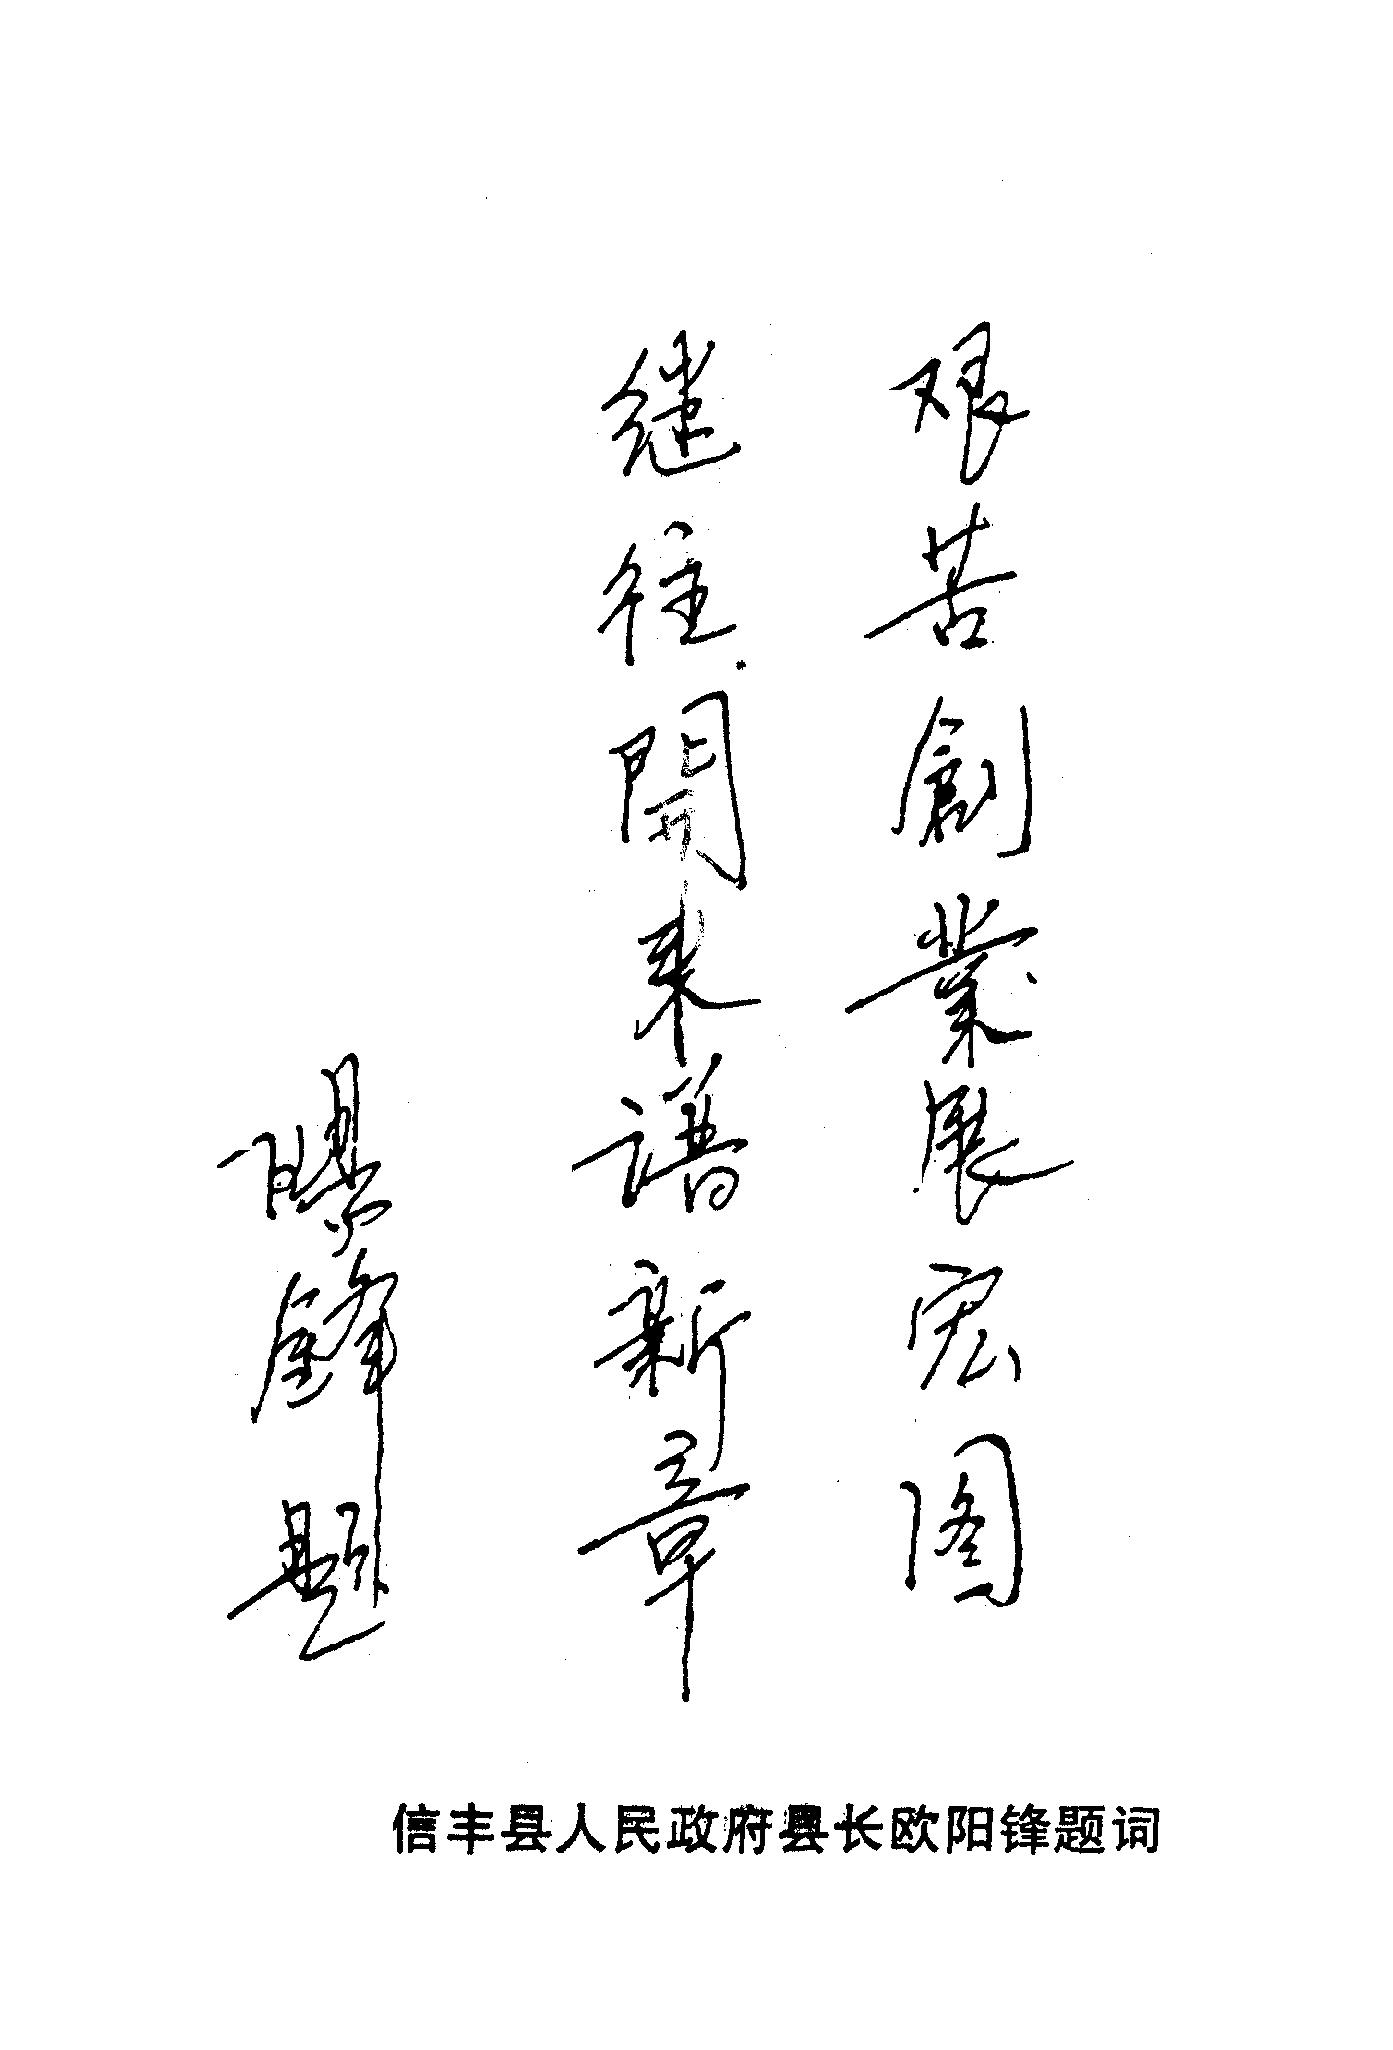 艰苦創業展宏图
继往開来谱新章
歐陽鋒题
信丰县人民政府县长欧阳锋题词